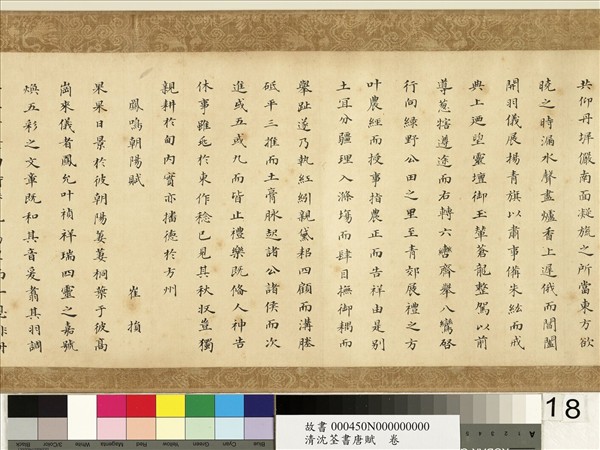 共仰丹墀儼南面凝旒之所當東方欲
曉之時漏水聲盡爐香上遲俄而閶闔
開羽儀展揚青旗以肅事備朱紘而戒
典上迺望靈壇御玉輦蒼龍整駕以前
導蔥犗遵途而右轉六轡齊舉八鸞啓
行向綠野公田之里至青郊展禮之方
叶農經而授事指農正而告祥由是別
土宜分疆理入滌場而肆目撫御耦而
舉趾遂乃執紅紖親黛耜四顧而溝塍
砥平三推而土膏脉起諸公諸侯而次
進或五或九而皆止禮樂既脩人神告
休事雖起於東作稔已見其秋收豈獨
親耕於甸内實亦播德於方州
鳳鳴朝陽賦 崔損
杲杲日景於彼朝陽萋萋桐葉于彼高
崗來儀者鳳允叶禎祥瑞四靈之嘉號
煥五彩之文章既和其音爰翥其羽調
Black 3/Color White Magenta Red Yellow Green Cyan Blue
故書 000450N000000000
清沈荃書唐賦 卷
A
18